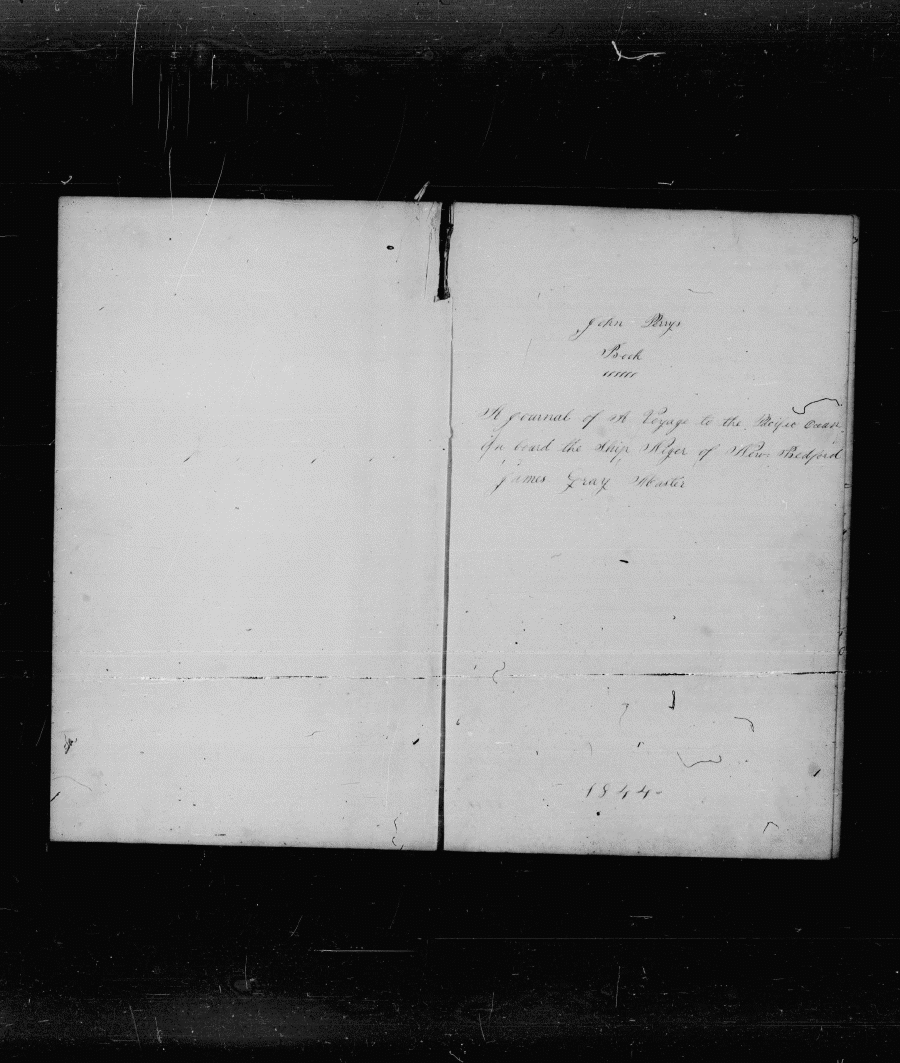 John Perrys
Book
A Journal of A Voyage to the Pacific Ocean
On board the Ship Niger of New Bedford
James Gray Master
1844